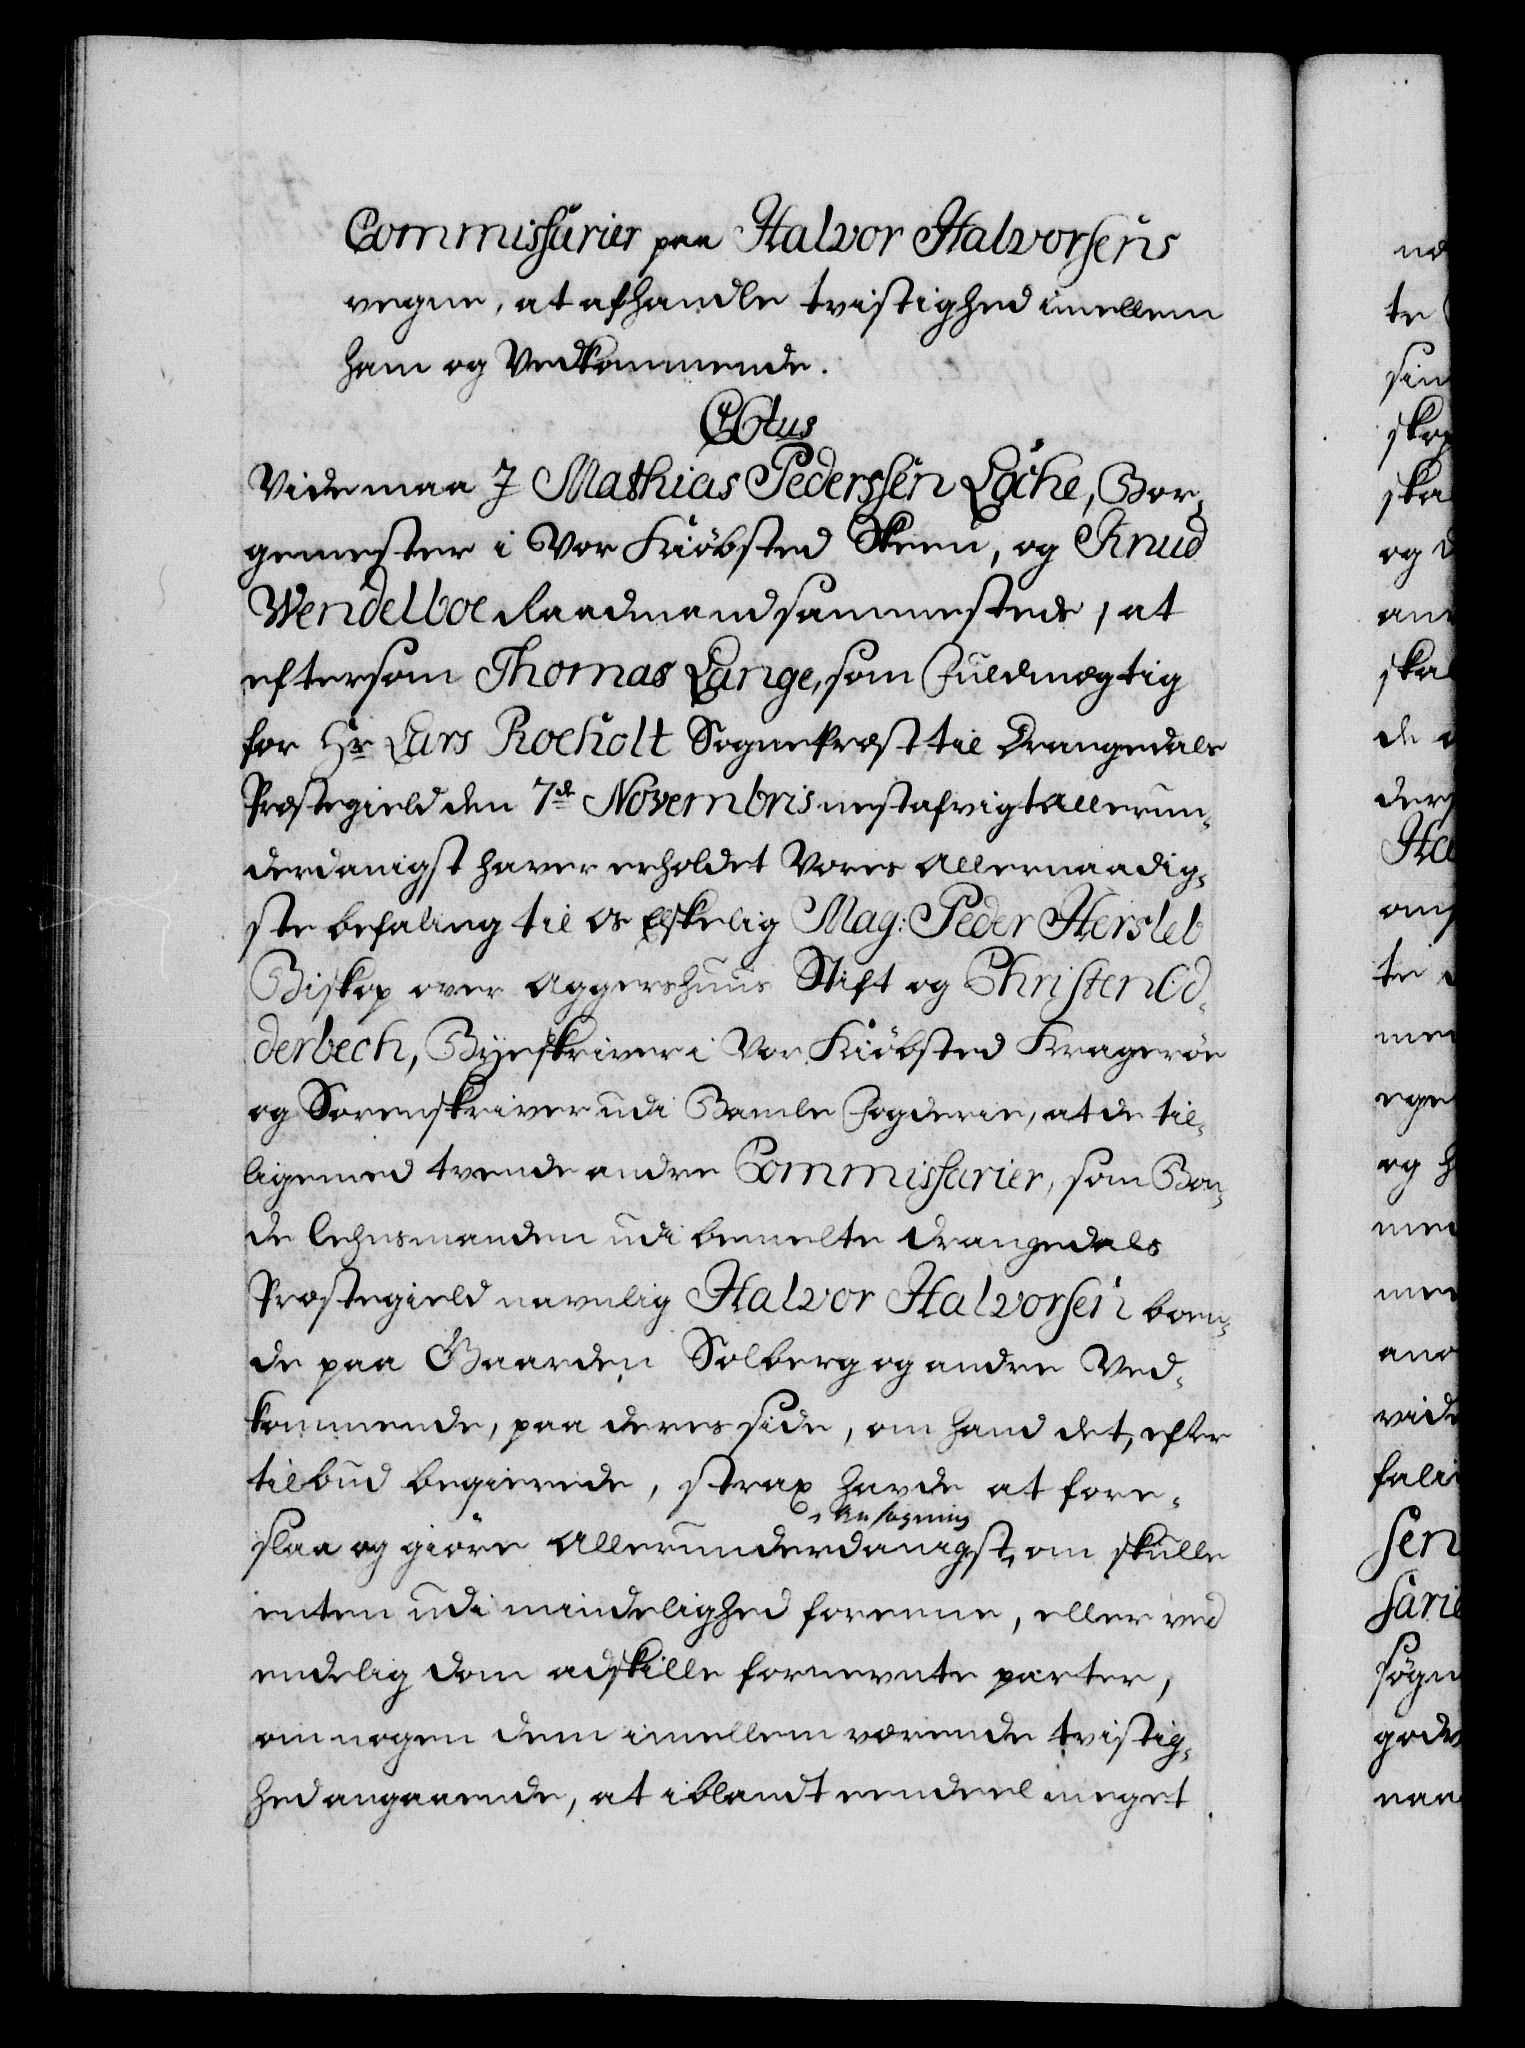 Commissarier paa Halvor Halvorsens
vegne, at afhandle tvistighed imellem
ham og Vedkommende.
C6tus
Vide maa I Mathias Pederssen Löche, Bor-
gemester i Vor Kiöbsted Skeen, og Knud
Wendelboe Raadmand sammesteds, at
eftersom Thomas Lange, som Fuldmægtig
for Hr Lars Rocholt Sognepræst til Drangedals
Præstegield den 7de Novembris nestafvigt allerun-
derdanigst haver erholdet Vores allernaadig-
ste befaling til Os Elskelig Mag: Peder Hersleb
Biskop over Aggershuus Stift og Christen Od-
derbech, Byeskriver i Vor Kiöbsted Krageröe
og Sorenskriver udi Bamle Fogderie, at de til-
ligemed tvende andre Commissarier, som Bon-
de lehnsmanden udi bemelte Drangedals
Præstegield navnlig Halvor Halvorsen boen-
de paa Gaarden Solberg og andre Ved-
kommende, paa deres side, om hand det, efter
tilbud begierede, strax havde at fore-
slaa og giöre allerunderdanigst ansögning om skulle
enten udi mindelighed foreene, eller ved
endelig dom adskille fornevnte parter,
om nogen dem imellem værende tvistig-
hed angaaende, at iblandt eendeel meget